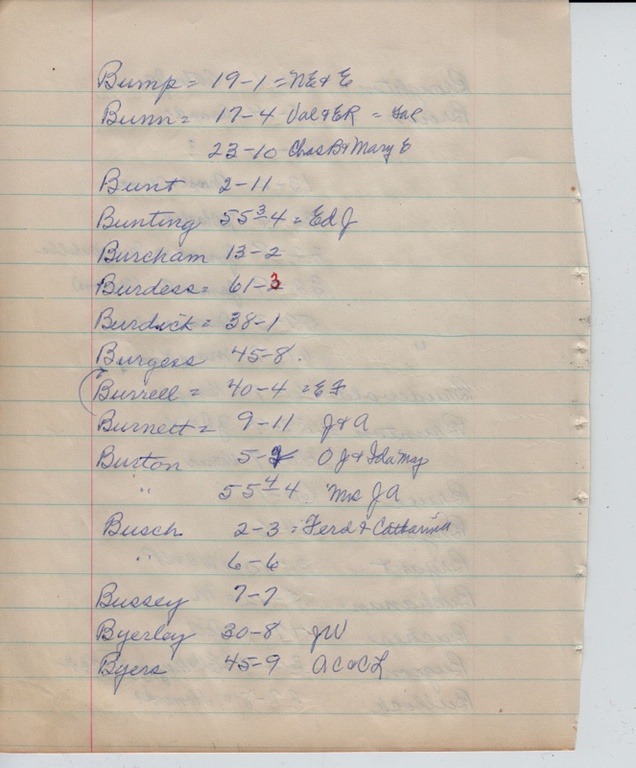 Bump = 19-1 = NE & E
Bunn = 17-4 Val & ER = Val
23-10 Chas B & Mary E
Bunt 2-11
Bunting 55³-4 = Ed J
Burcham 13-2
Burdess = 61-3
Burdick = 38-1
Burgess 45-8.
Burrell = 40-4 = E F
Burnett = 9-11 J & A
Burton 5- O J & Ida May
" 55⁴-4 Mrs J A
Busch 2-3 = Ferd & Catharina
" 6-6
Bussey 7-7
Byerley 30-8 JW
Byers 45-9 A C & C L